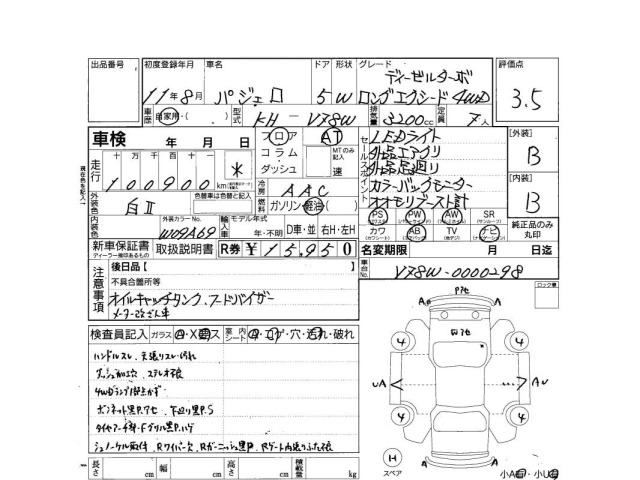 出品番号 初度登録年月 車名 ドア 形状 グレード 評価点
11年8月 パジェロ 5 W ディーゼルターボ
ロングエクシード 4WD 3.5
車歴 自家用・( ) 型式 KH - V78W 排気量 3200cc 定員 7人
車検 年 月 日 フロア AT LEDライト 【外装】
走行 十 万 千 百 十 一 コラム MTのみ記入 社外品エアクリ B
100900 km * ダッシュ 速
冷房 AAC カラーバックモニター 【内装】
外装色 白Ⅱ 色替車は色替と記入 燃料 ガソリン・軽油・( ) オイルブースト計 B
内装色 外装カラーNo. W09A69 輸入車 モデル年式 年・不明 D車・並 右H・左H
PS PW AW SR 純正品のみ丸印
カワ AB TV ナビ
新車保証書 取扱説明書 R券 ¥15950 名変期限 月 日迄
ディーラー捺印あるもの
注意事項 後日品【 】 車台No. V78W-0000298
不具合箇所等 ロック車
オイルキャッチタンク、フードバイザー
メーター改ざん車
検査員記入 ガラス Ⓐ・X・ス 室内シート ・コゲ・穴・汚れ・破れ
ハンドルスレ、天張りスレ・汚れ
ダッシュ加工穴 ステレオ不良
4WDランプ1部点かず
ボンネット裏P、アセ 下廻り裏P、S
シュノーケル取付、Rワイパー欠、Rガーニッシュ裏P、Rゲート内張りふた不良
長さ cm 幅 cm 高さ cm 積載量 kg
Pアセ
A A
4 4
UA A AU
4 4
H スペア A A
小A・小U